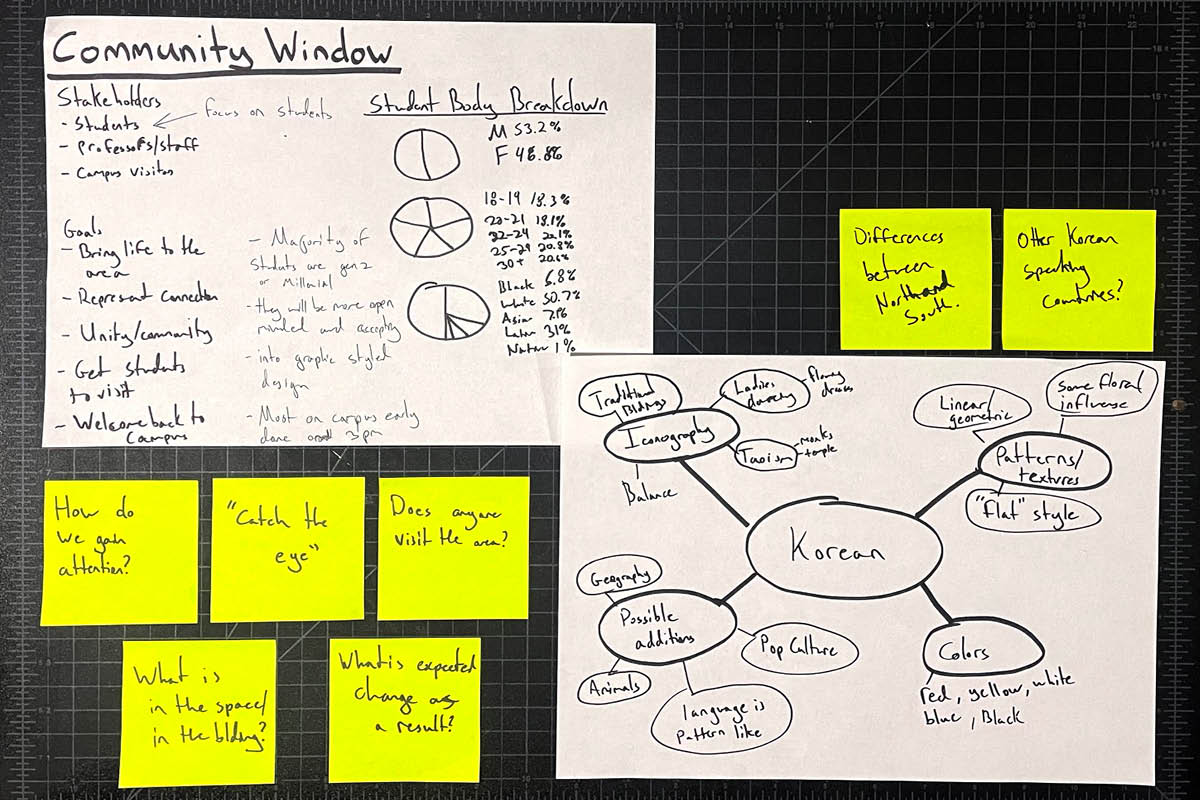 Community Window
Stakeholders
- Students
Focus on students
- Professors/staff
- Campus visitors
Goals
- Bring life to the
area
- Represent Connection
- Unity/community
- Get students
to visit
- Welcome back to
Campus
- Majority of
students are gen z
or Millenial
- they will be more open
minded and accepting
- into graphic styled
design
- Most on campus early
done around 3pm
Student Body Breakdown
M 53.2%
F 46.8%
18-19 18.3%
20-21 18.1%
22-24 22.1%
25-29 20.8%
30+ 20.6%
Black 6.8%
White 50.7%
Asian 7.1%
Latin 31%
Native 1%
Differences
between
North and
South.
Other Korean
speaking
countries?
How do
we gain
attention?
"Catch the
eye"
Does anyone
visit the area?
What is
in the space/
in the bldng?
What is expected
change as
a result?
Korean
Iconography
Traditional
Bldings
Ladies
dancing
- flowing
dresses
Taoism
- monks
temple
Balance
Patterns/
textures
Linear/
geometric
Some floral
influense
"flat" style
Possible
additions
Geography
Animals
language is
pattern like
Pop Culture
Colors
red, yellow, white
blue, Black